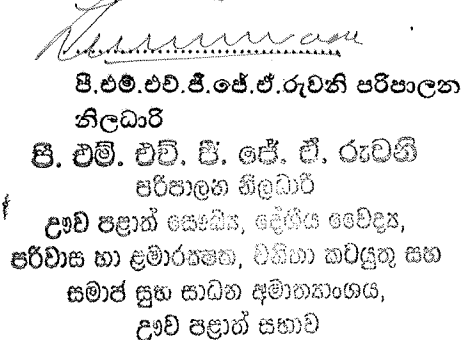 පී.එම්.එච්.ජී.ජේ.ඒ.රුවනි පරිපාලන
නිලධාරි
පී. එම්. එච්. පී. ජේ. ඒ. රුවනි
පරිපාලන නිලධාරී
ඌව පළාත් සෞඛ්‍ය, දේශීය වෛද්‍ය,
පරිවාස හා ළමාරක්ෂක, වනිතා කටයුතු සහ
සමාජ සුභ සාධන අමාත්‍යාංශය,
ඌව පළාත් සභාව